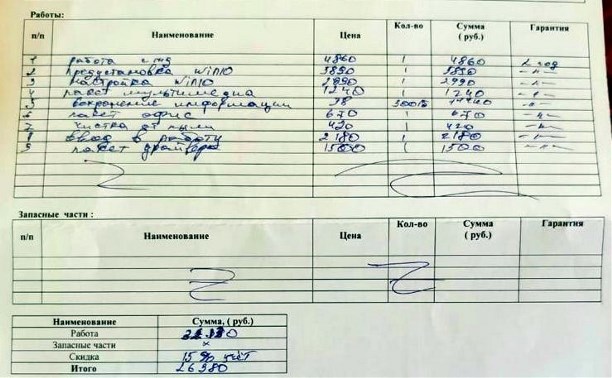 Работы:
п/п Наименование Цена Кол-во Сумма (руб.) Гарантия
1 работа с жд 4860 1 4860 1 год
2 предустановка WIN10 3890 1 3890 -//-
3 настройка WIN10 2990 1 2990 -//-
4 пакет мультимедиа 1240 1 1240 -//-
5 сохранение информации 38 -//-
6 пакет офис 670 1 670 -//-
7 чистка от пыли 420 1 420 -//-
8 ввод в работу 2180 1 2180 -//-
9 пакет драйвера 1500 1 1500 -//-
Запасные части :
п/п Наименование Цена Кол-во Сумма ( руб.) Гарантия
Наименование Сумма, ( руб.)
Работа
Запасные части х
Скидка 15
Итого 26980